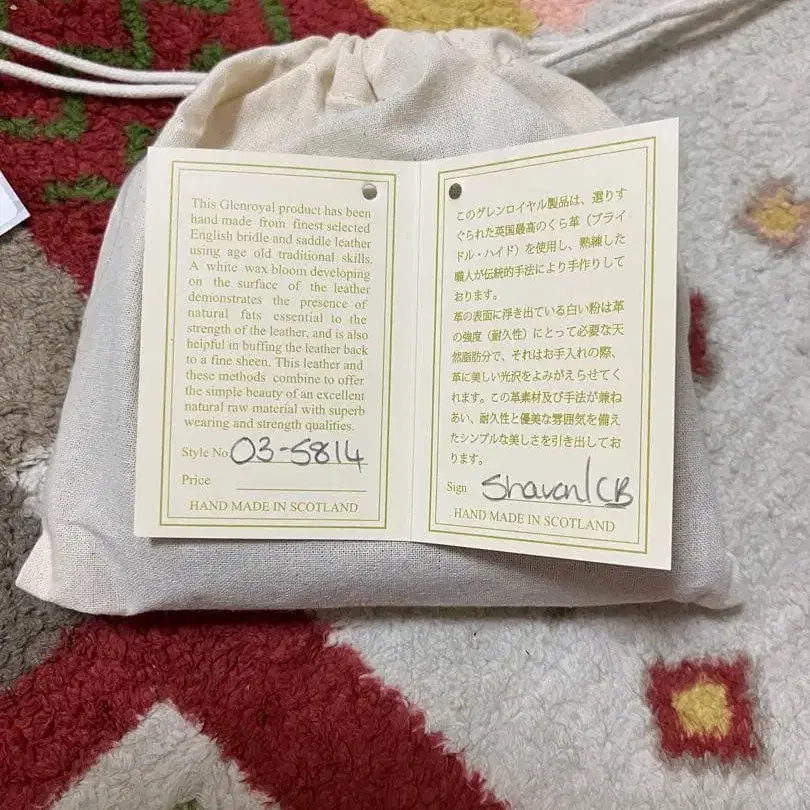 This Glenroyal product has been
hand made from finest selected
English bridle and saddle leather
using age old traditional skills.
A white wax bloom developing
on the surface of the leather
demonstrates the presence of
natural fats essential to the
strength of the leather, and is also
helpful in buffing the leather back
to a fine sheen. This leather and
these methods combine to offer
the simple beauty of an excellent
natural raw material with superb
wearing and strength qualities.
Style No 03-5814
Price
HAND MADE IN SCOTLAND
このグレンロイヤル製品は、選りす
ぐられた英国最高のくら革（ブライ
ドル・ハイド）を使用し、熟練した
職人が伝統的手法により手作りして
おります。
革の表面に浮き出ている白い粉は革
の強度（耐久性）にとって必要な天
然脂肪分で、それはお手入れの際、
革に美しい光沢をよみがえらせてく
れます。この革素材及び手法が兼ね
あい、耐久性と優美な雰囲気を備え
たシンプルな美しさを引き出してお
ります。
Sign Shavon/CB
HAND MADE IN SCOTLAND